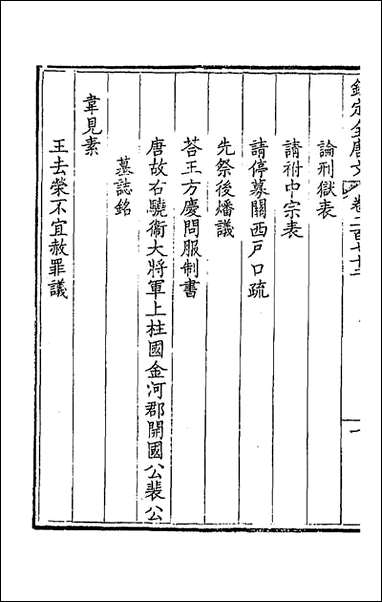 欽定全唐文 卷二百七十二 一
論刑獄表
請祔中宗表
請停募關西戸口疏
先祭後燔議
荅王方慶問服制書
唐故右驍衞大將軍上柱國金河郡開國公裴公
墓誌銘
韋見素
王去榮不宜赦罪議